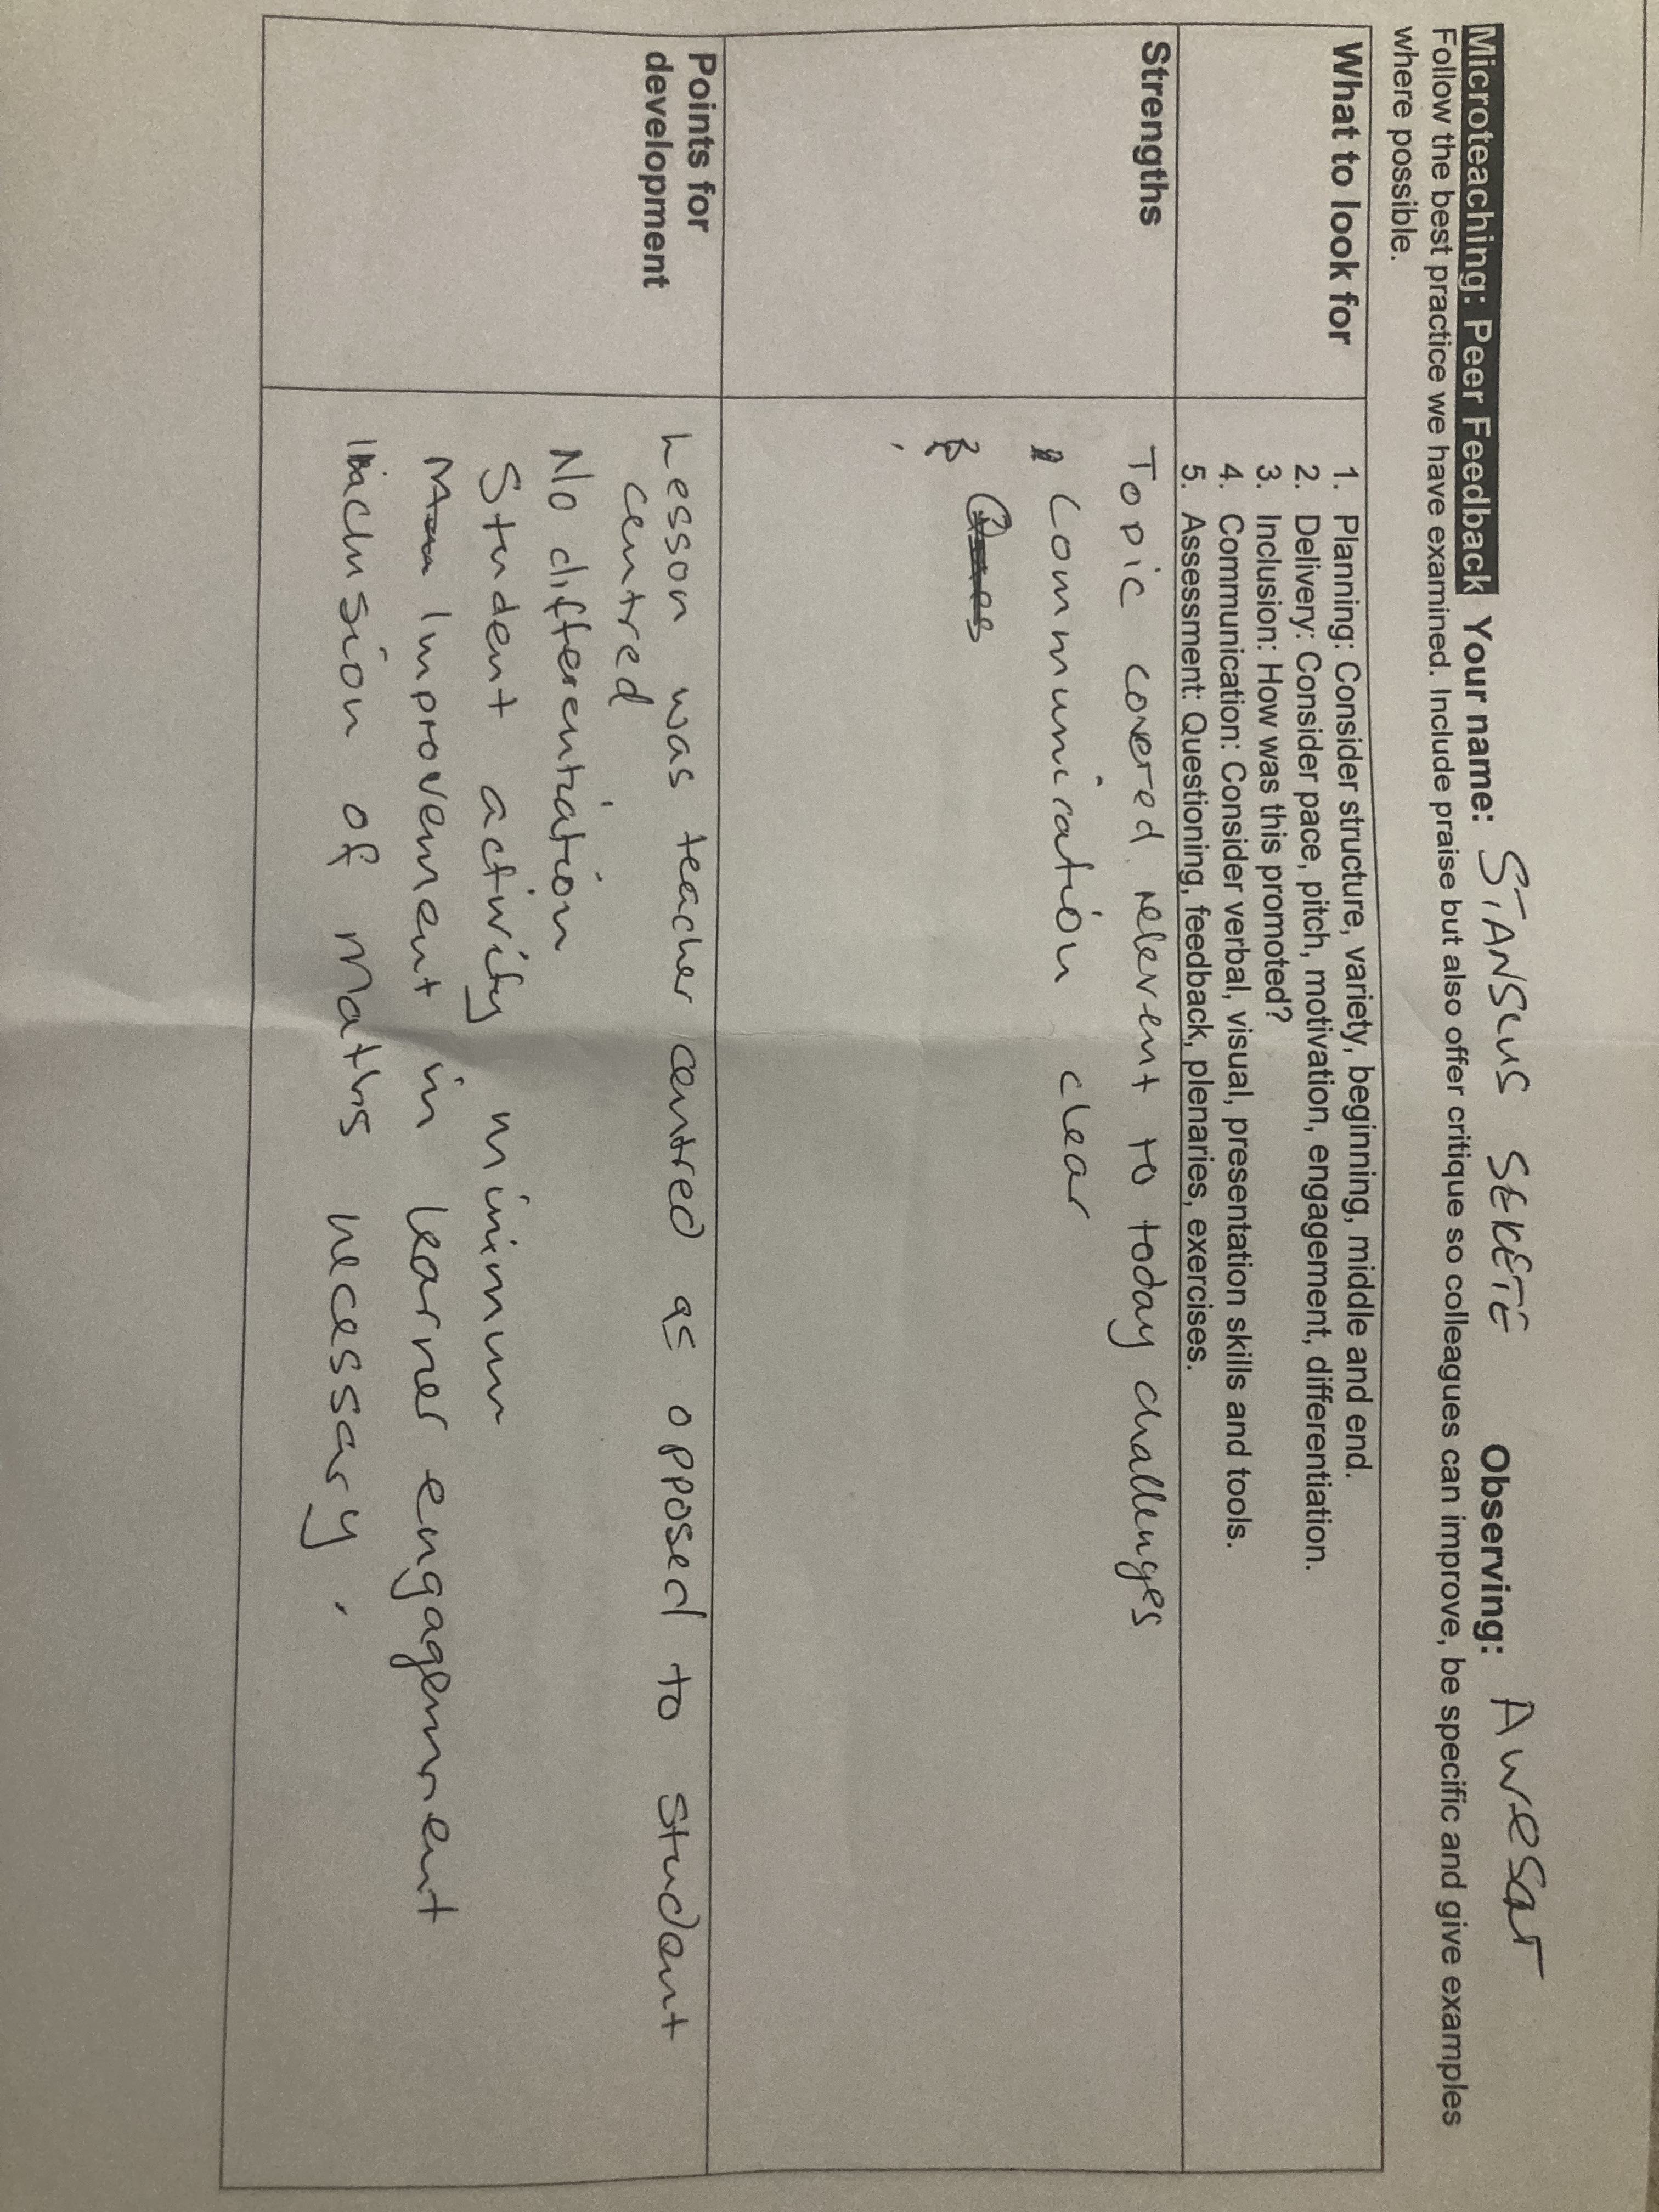 Microteaching: Peer Feedback Your name: STANSCUS SEKETE Observing: Awesar
Follow the best practice we have examined. Include praise but also offer critique so colleagues can improve, be specific and give examples
where possible.
What to look for
1. Planning: Consider structure, variety, beginning, middle and end.
2. Delivery: Consider pace, pitch, motivation, engagement, differentiation.
3. Inclusion: How was this promoted?
4. Communication: Consider verbal, visual, presentation skills and tools.
5. Assessment: Questioning, feedback, plenaries, exercises.
Strengths
Topic covered relevent to today challenges
Communication clear
Points for
development
Lesson was teacher centred as opposed to student
centred
No differentiation
Student activity minimum
Improvement in learner engagement
Inclusion of Maths necessary.